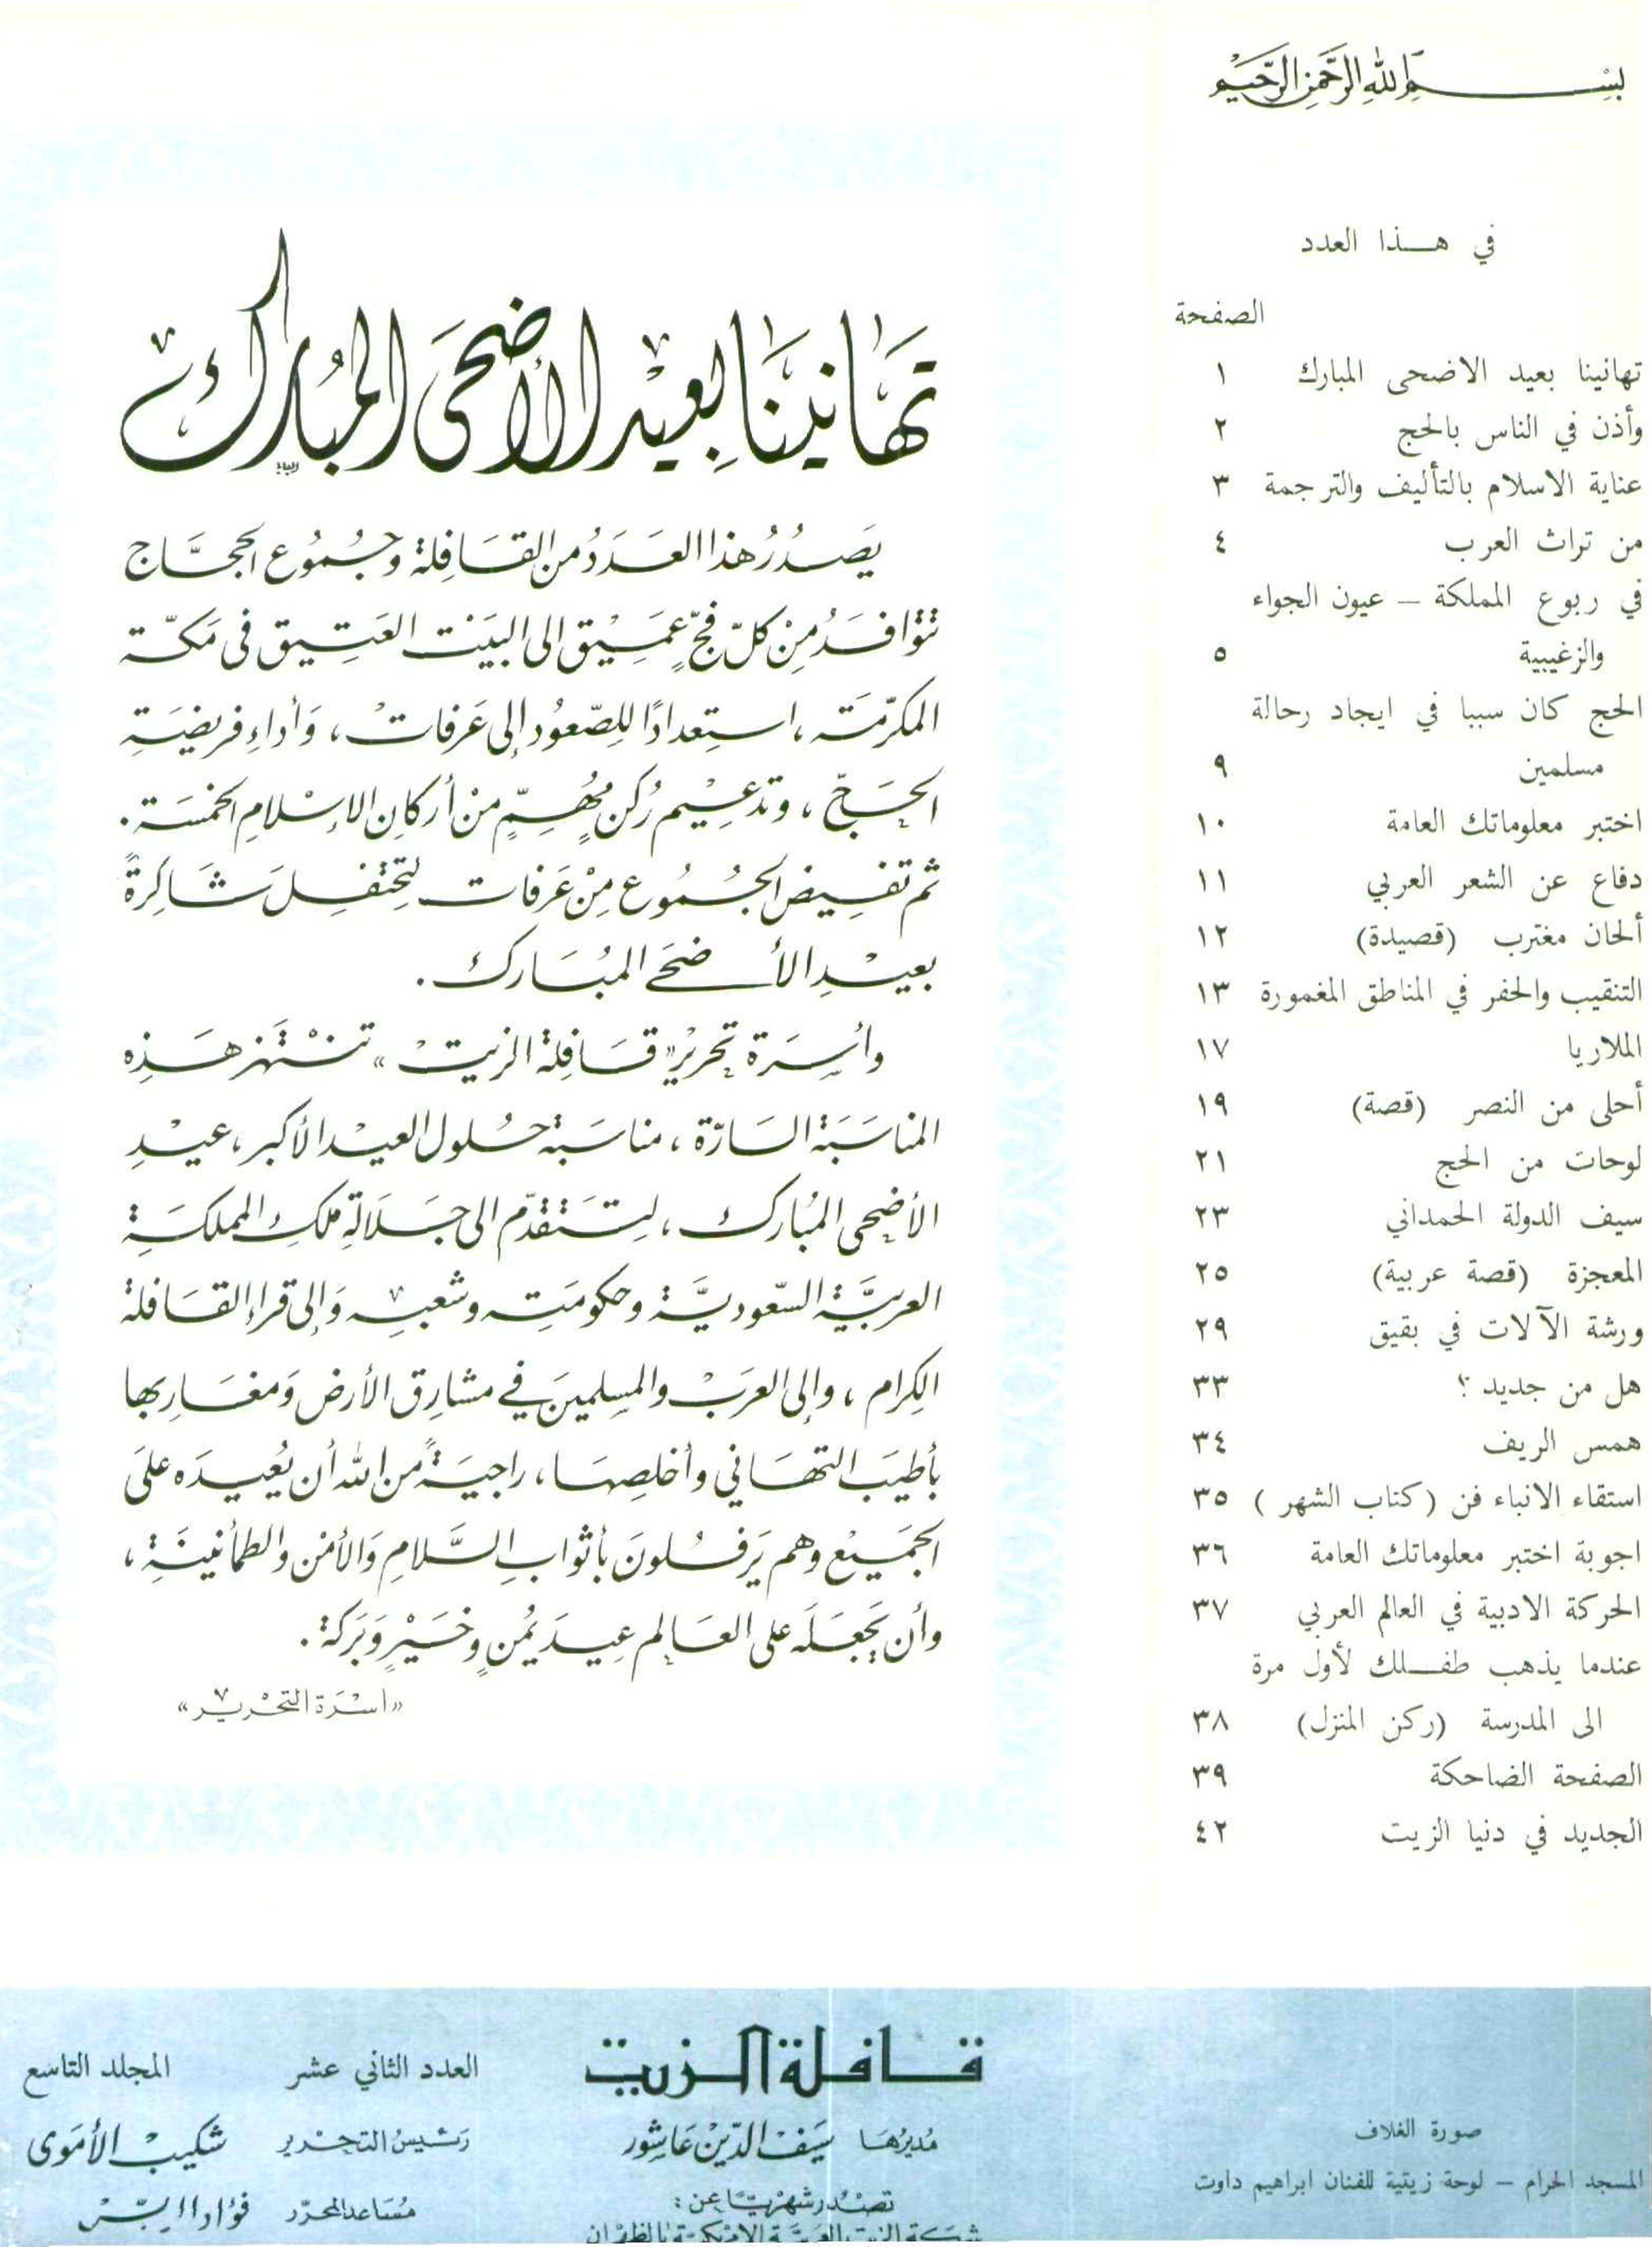 بسم الله الرحمن الرحيم
في هـــذا العدد
الصفحة
تهانينا بعيد الاضحى المبارك ١
وأذن في الناس بالحج ٢
عناية الاسلام بالتأليف والترجمة ٣
من تراث العرب ٤
في ربوع المملكة – عيون الجواء
والزغيبية ٥
الحج كان سببا في ايجاد رحالة
مسلمين ٩
اختبر معلوماتك العامة ١٠
دفاع عن الشعر العربي ١١
ألحان مغترب (قصيدة) ١٢
التنقيب والحفر في المناطق المغمورة ١٣
الملاريا ١٧
أحلى من النصر (قصة) ١٩
لوحات من الحج ٢١
سيف الدولة الحمداني ٢٣
المعجزة (قصة عربية) ٢٥
ورشة الآلات في بقيق ٢٩
هل من جديد ؟ ٣٣
همس الريف ٣٤
استقاء الانباء فن ( كتاب الشهر ) ٣٥
اجوبة اختبر معلوماتك العامة ٣٦
الحركة الادبية في العالم العربي ٣٧
عندما يذهب طفـــلك لأول مرة
الى المدرسة (ركن المنزل) ٣٨
الصفحة الضاحكة ٣٩
الجديد في دنيا الزيت ٤٢
تهانينا بعيد الأضحى المبارك
يصدر هذا العدد من القافلة وجموع الحجاج
تتوافد من كلّ فجّ عميق الى البيت العتيق في مكّة
المكرّمة، استعدادًا للصّعود إلى عرفات، وأداء فريضة
الحجّ، وتدعيم ركن مهمّ من أركان الإسلام الخمسة.
ثم تفيض الجموع من عرفات لتحتفل شاكرةً
بعيد الأضحى المبارك.
وأسرة تحرير «قافلة الزيت» تنتهز هذه
المناسبة السارّة، مناسبة حلول العيد الأكبر، عيد
الأضحى المبارك، لتتقدّم الى جلالة ملك المملكة
العربيّة السّعوديّة وحكومته وشعبه وإلى قراء القافلة
الكرام، وإلى العرب والمسلمين في مشارق الأرض ومغاربها
بأطيب التهاني وأخلصها، راجيةً من الله أن يُعيده على
الجميع وهم يرفلون بأثواب السّلام والأمن والطمأنينة،
وأن يجعله على العالم عيد يُمن وخير وبركة.
«اسرة التحرير»
صورة الغلاف
المسجد الحرام – لوحة زيتية للفنان ابراهيم داوت
قافلة الزيت
مديرها سيف الدّين عاشور
تصدر شهريّا عن:
شركة الزيت العربيّة الامريكيّة بالظهران
العدد الثاني عشر المجلد التاسع
رئيس التحرير شكيب الأموي
مساعد المحرّر فؤاد الريّس